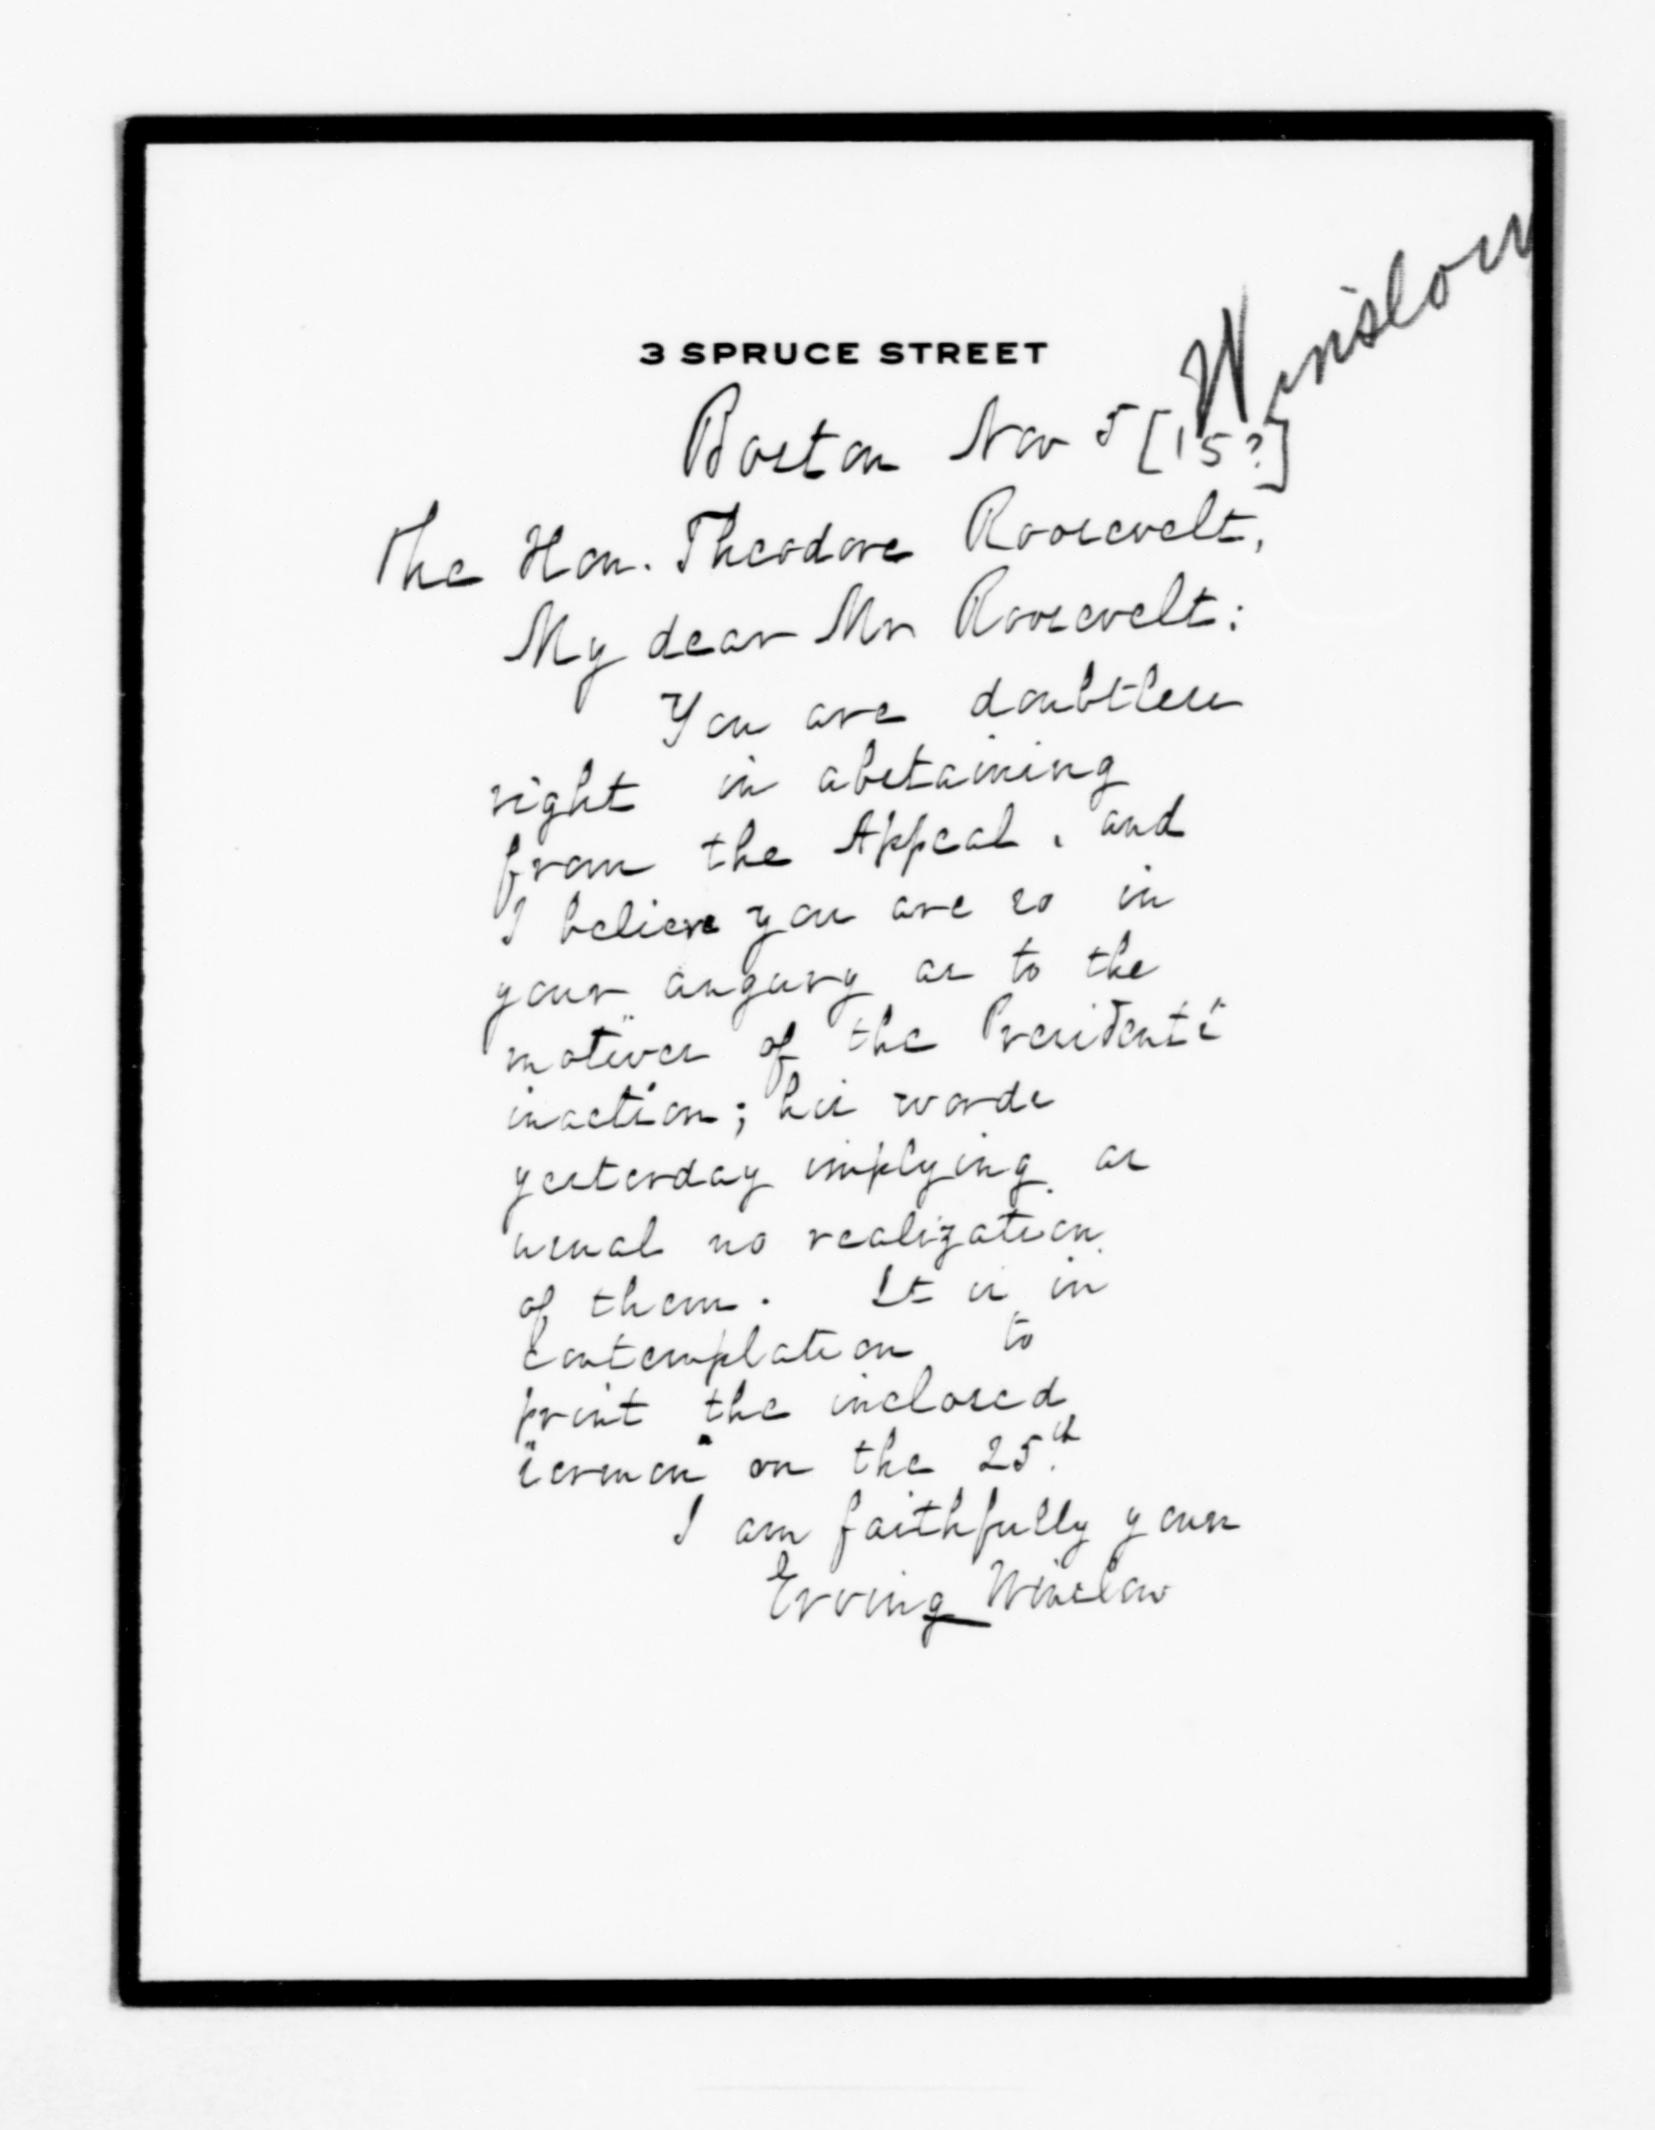 Winslow
3 SPRUCE STREET
Boston Nov 5 [15?]
The Hon. Theodore Roosevelt,
My dear Mr Roosevelt:
You are doubtless
right in abstaining
from the Appeal, and
I believe you are so in
your augury as to the
motives of the President's
inaction; his words
yesterday implying as
usual no realization
of them. It is in
contemplation to
print the inclosed
"sermon" on the 25th.
I am faithfully yours
Erving Winslow